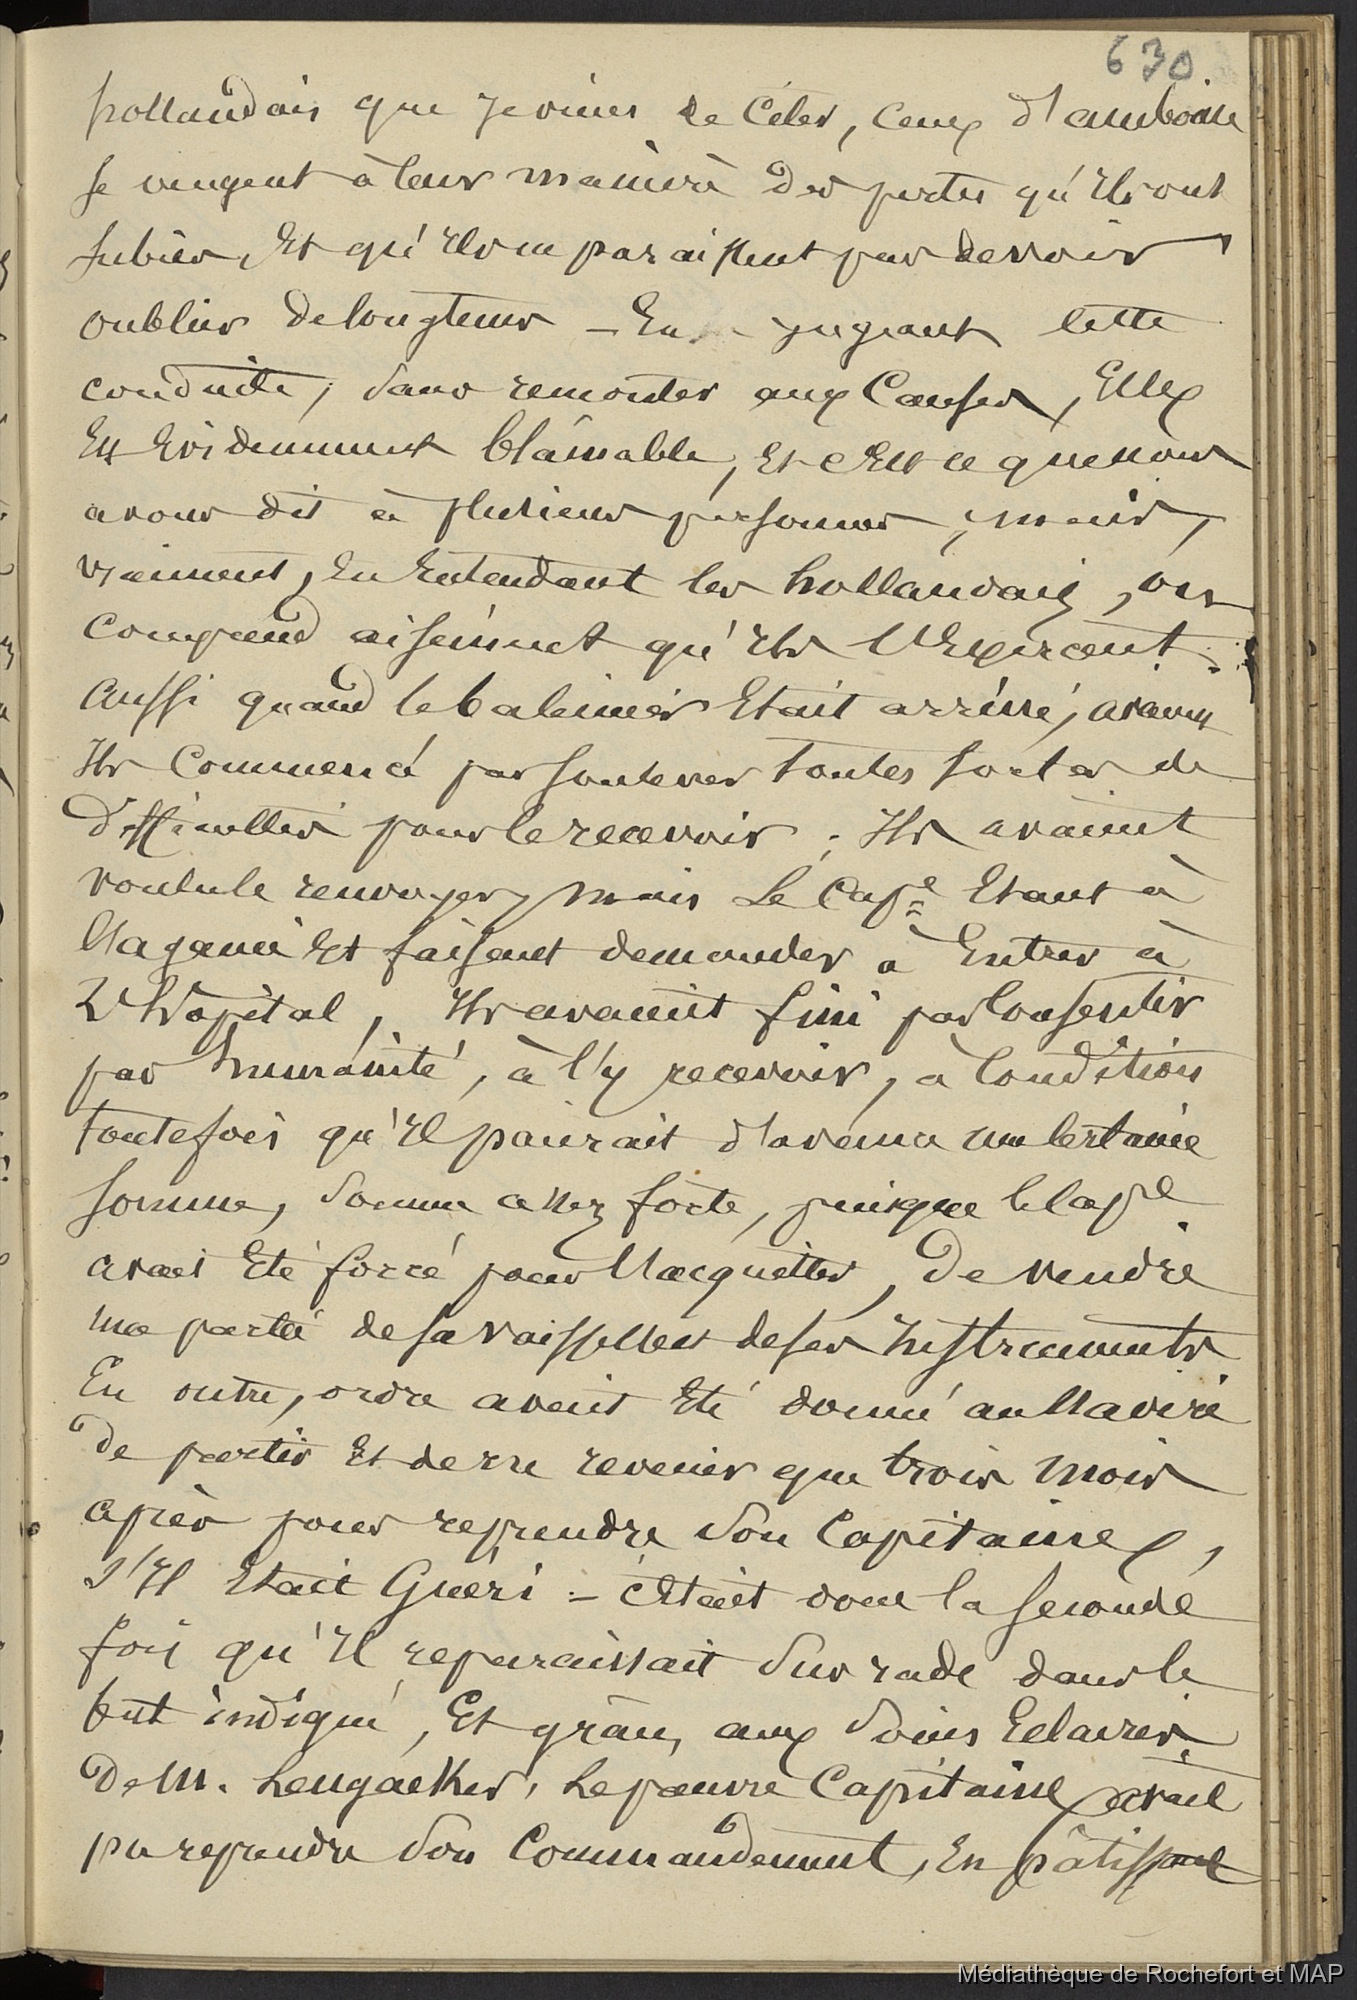 630.
hollandais que je viens de citer, ceux d'amboine
se vengent à leur manière des pertes qu'ils ont
subies, Et qu'ils ne paraissent pas devoir
oublier de longtems – En jugeant cette
conduite, sans remonter aux Causes, Elle
Est Evidemment blâmable, Et c'Est ce que nous
avons dit à plusieurs personnes ; mais,
vraiment, En Entendant les hollandais, on
comprend aisément qu'ils l'Exercent.
Aussi quand le baleinier Etait arrivé, avaient
Ils Commencé par soulever toutes sortes de
difficultés pour le recevoir ; Ils avaient
voulu le renvoyer, mais Le Cape Etant à
l'agonie Et faisant demander à Entrer à
L'hôpital, Ils avaient fini par Consentir
par humanité, à l'y recevoir, à Condition
toutefois qu'Il paierait d'avance une Certaine
somme, somme assez forte, puisque le Cape
avait Eté forcé pour l'acquitter, De vendre
une partie de sa vaisselle et de ses Instruments
En outre, ordre avait Eté donné au Navire
De partir Et de ne revenir que trois mois
après pour reprendre son Capitaine,
s'Il Etait Guéri – c'Etait donc la seconde
fois qu'Il reparaissait sur rade dans le
but indiqué, Et grâce, aux soins Eclairés
De M. Lengacker, Le pauvre Capitaine avait
pu reprendre son Commandement, En pâtissant
Médiathèque de Rochefort et MAP